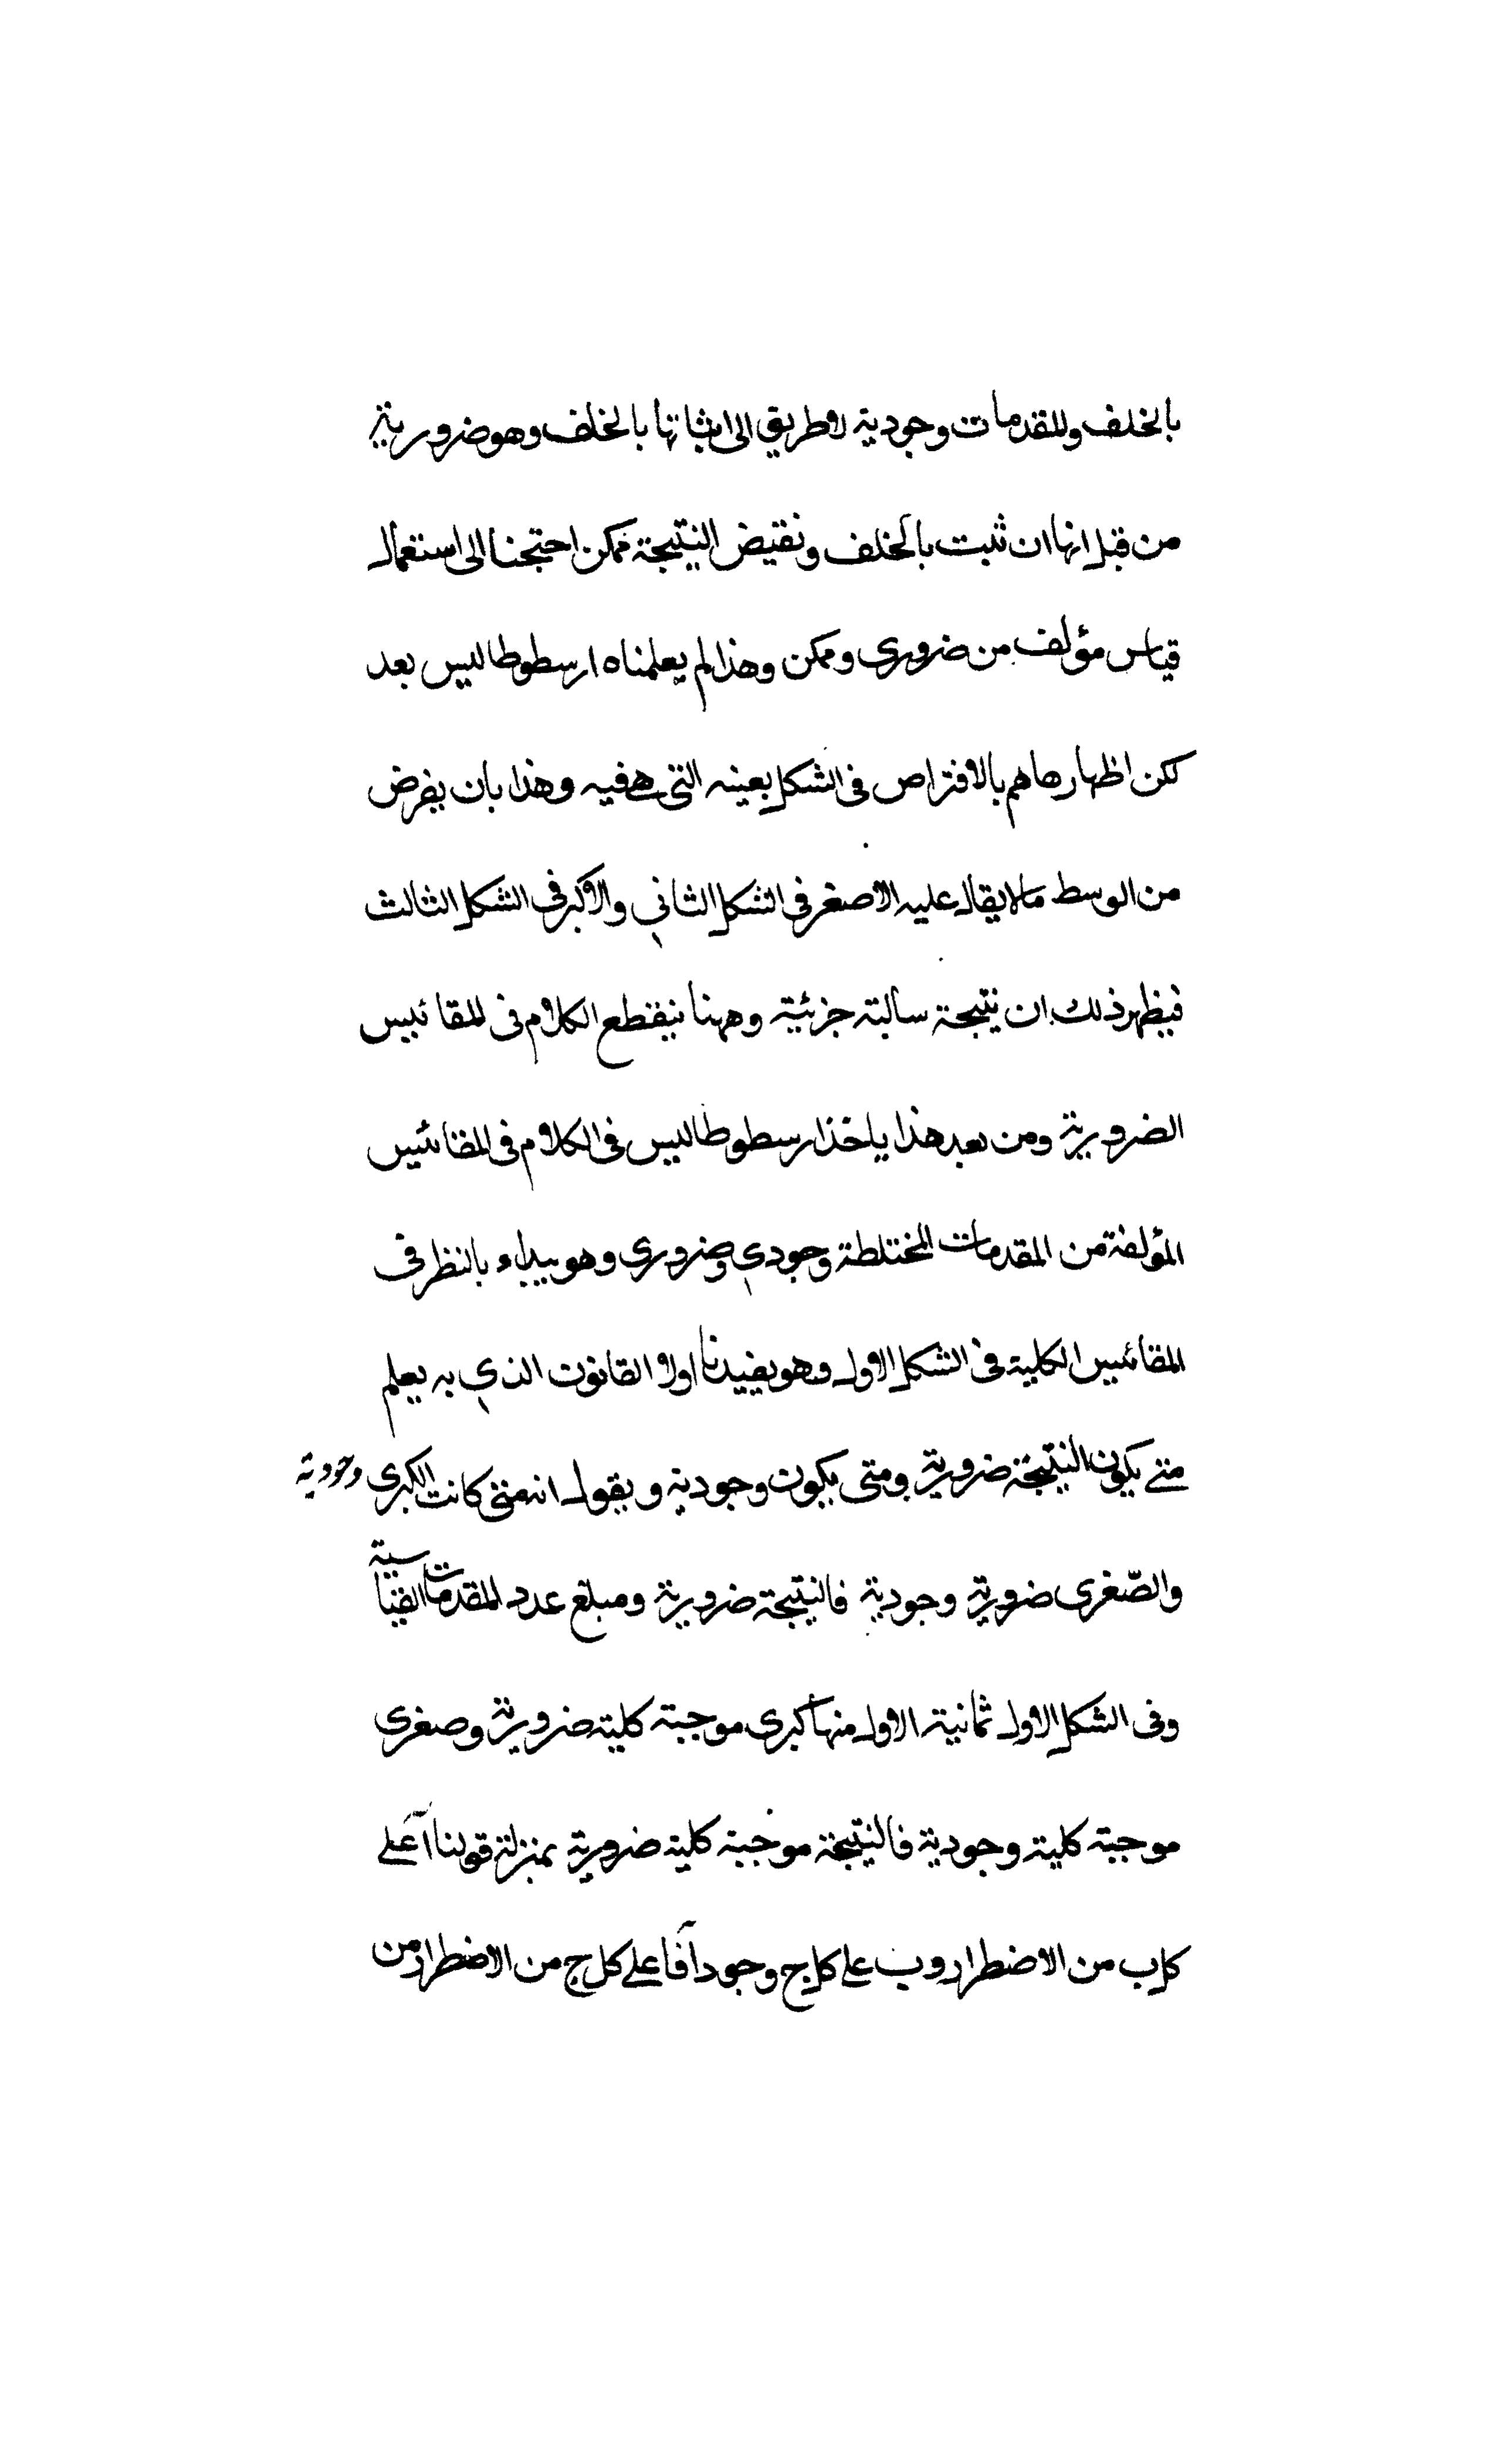 بالخلف وللقدمات وجودية لا طريق الى اثباتها بالخلف وهو ضرورية
من قبل انها ان ثبت بالخلف ونقيض النتيجة ممكن احتجنا الى استعمال
قياس مؤلف من ضرورى وممكن وهذا لم يعلمناه ارسطوطاليس بعد
لكن اظهارها هم بالافتراص فى الشكل بعينه التى هے فيه وهذا بان يفرض
من الوسط ما لا يقال عليه الاصغر فى الشكل الثانى والاكبر فى الشكل الثالث
فيظهر ذلك ان نتيجة سالبة جزئية وههنا ينقطع الكلام فى المقائيس
الضرورية ومن بعد هذا ياخذ ارسطوطاليس فى الكلام فى المقائيس
المؤلفة من المقدمات المختلطة وجودى وضرورى وهو يبداء بالنظر فى
المقائيس الكلية فى الشكل الاول وهو يفيدنا اولا القانون الذى به يعلم
متے يكون النتيجة ضرورية ومتى يكون وجودية ويقول انه متى كانت الكبرى وجودية
والصّغرى ضرورية وجودية فالنتيجة ضرورية ومبلغ عدد المقدمات القياسية
وفى الشكل الاول ثمانية الاول منها كبرى موجبة كلية ضرورية وصغرى
موجبة كلية وجودية فالنتيجة موجبة كلية ضرورية بمنزلة قولنا آ على
كل ب من الاضطرار وب على كل ج وجودا فآ على كل ج من الاضطرار من